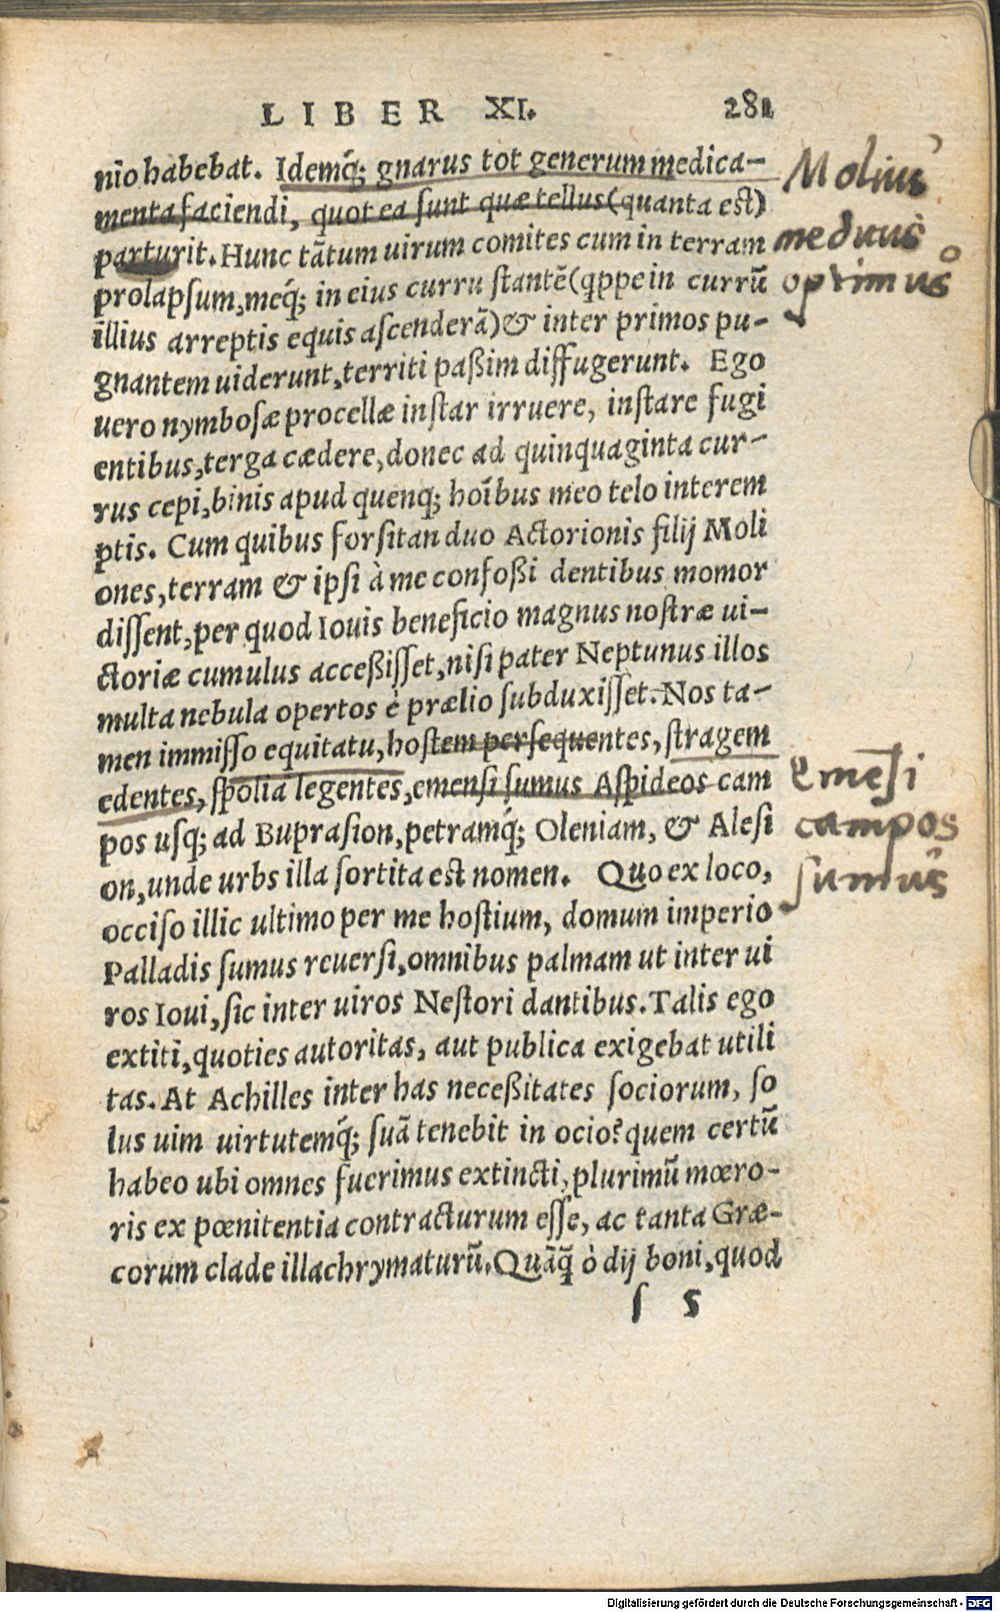 LIBER XI. 281
nio habebat. Idemq́; gnarus tot generum medica-
menta faciendi, quot ea sunt quæ tellus (quanta est)
parturit. Hunc tãtum uirum comites cum in terram
prolapsum, meq́; in eius curru stantẽ (qppe in currũ
illius arreptis equis ascenderã) & inter primos pu-
gnantem uiderunt, territi paßim diffugerunt. Ego
uero nymbosæ procellæ instar irruere, instare fugi
entibus, terga cædere, donec ad quinquaginta cur-
rus cepi, binis apud quenq; hoĩbus meo telo interem
ptis. Cum quibus forsitan duo Actorionis filij Moli
ones, terram & ipsi à me confoßi dentibus momor
dissent, per quod Iouis beneficio magnus nostræ ui-
ctoriæ cumulus acceßisset, nisi pater Neptunus illos
multa nebula opertos è prælio subduxisset. Nos ta-
men immisso equitatu, hostem persequentes, stragem
edentes, spolia legentes, emensi sumus Aspideos cam
pos usq; ad Buprasion, petramq́; Oleniam, & Alesi
on, unde urbs illa sortita est nomen. Quo ex loco,
occiso illic ultimo per me hostium, domum imperio
Palladis sumus reuersi, omnibus palmam ut inter ui
ros Ioui, sic inter uiros Nestori dantibus. Talis ego
extiti, quoties autoritas, aut publica exigebat utili
tas. At Achilles inter has neceßitates sociorum, so
lus uim uirtutemq́; suã tenebit in ocio? quem certũ
habeo ubi omnes fuerimus extincti, plurimũ mœro-
ris ex pœnitentia contracturum esse, ac tanta Græ-
corum clade illachrymaturũ. Quãq̃ ò dij boni, quod
s 5
Molius
medicus
optimus
Emesi
campos
sumus
Digitalisierung gefördert durch die Deutsche Forschungsgemeinschaft - DFG